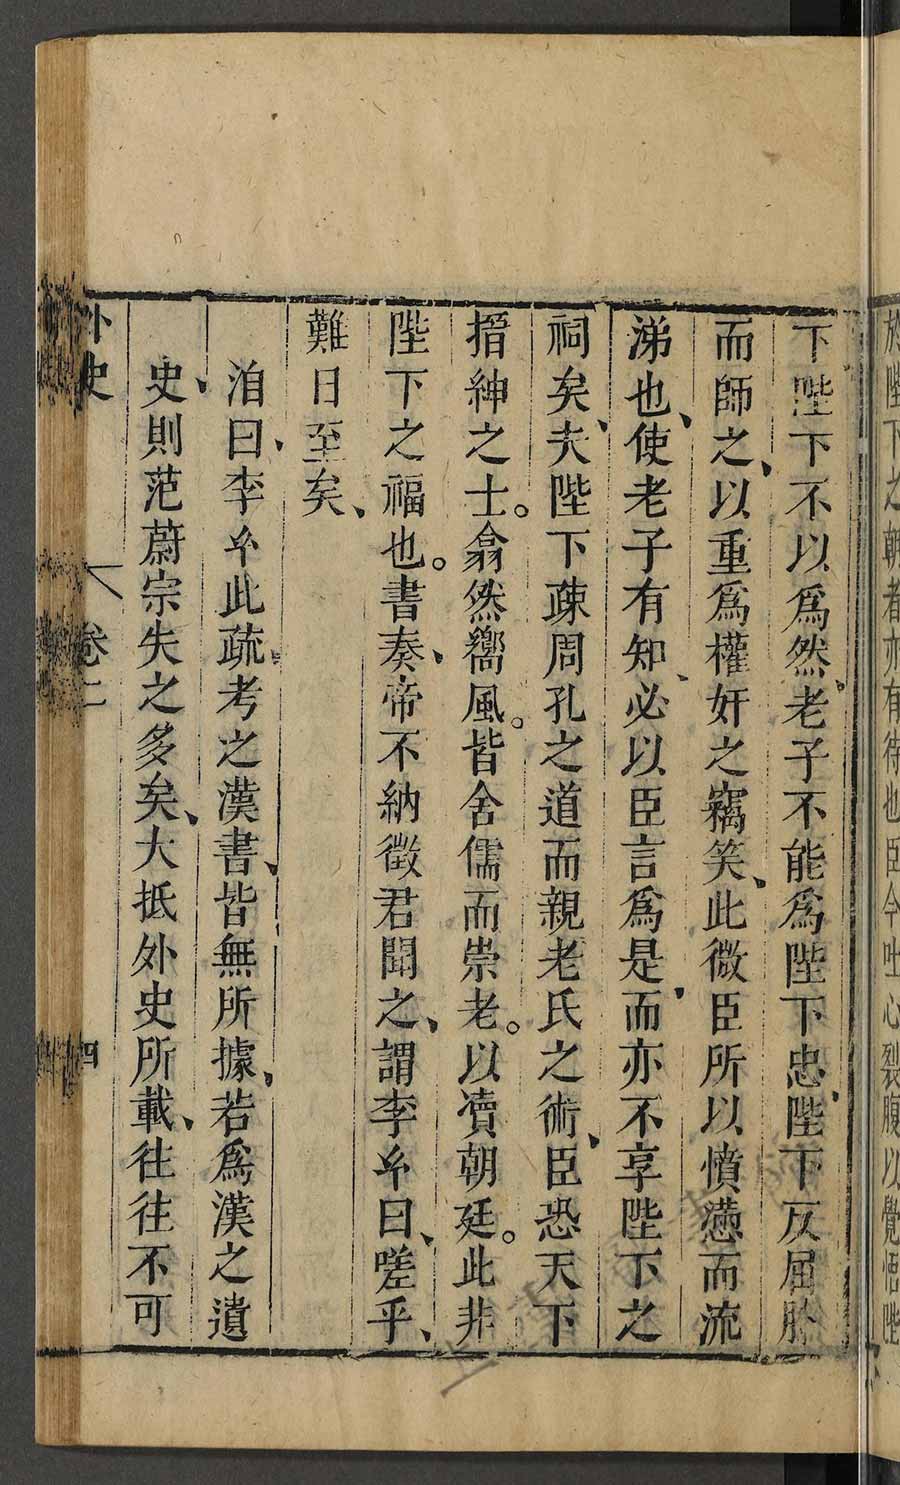 於陛下之朝者亦有待也臣今吐心裂腹以覺悟陛
下陛下不以爲然老子不能爲陛下忠陛下反屈於
而師之以重爲權奸之竊笑此微臣所以憤懣而流
涕也使老子有知必以臣言爲是而亦不享陛下之
祠矣夫陛下疎周孔之道而親老氏之術臣恐天下
搢紳之士。翕然嚮風。皆舍儒而崇老。以凟朝廷。此非
陛下之福也。書奏帝不納徵君聞之謂李糸曰嗟乎
難日至矣
洎曰李糸此疏考之漢書皆無所據若爲漢之遺
史則范蔚宗失之多矣大抵外史所載往往不可
外史 卷二 四